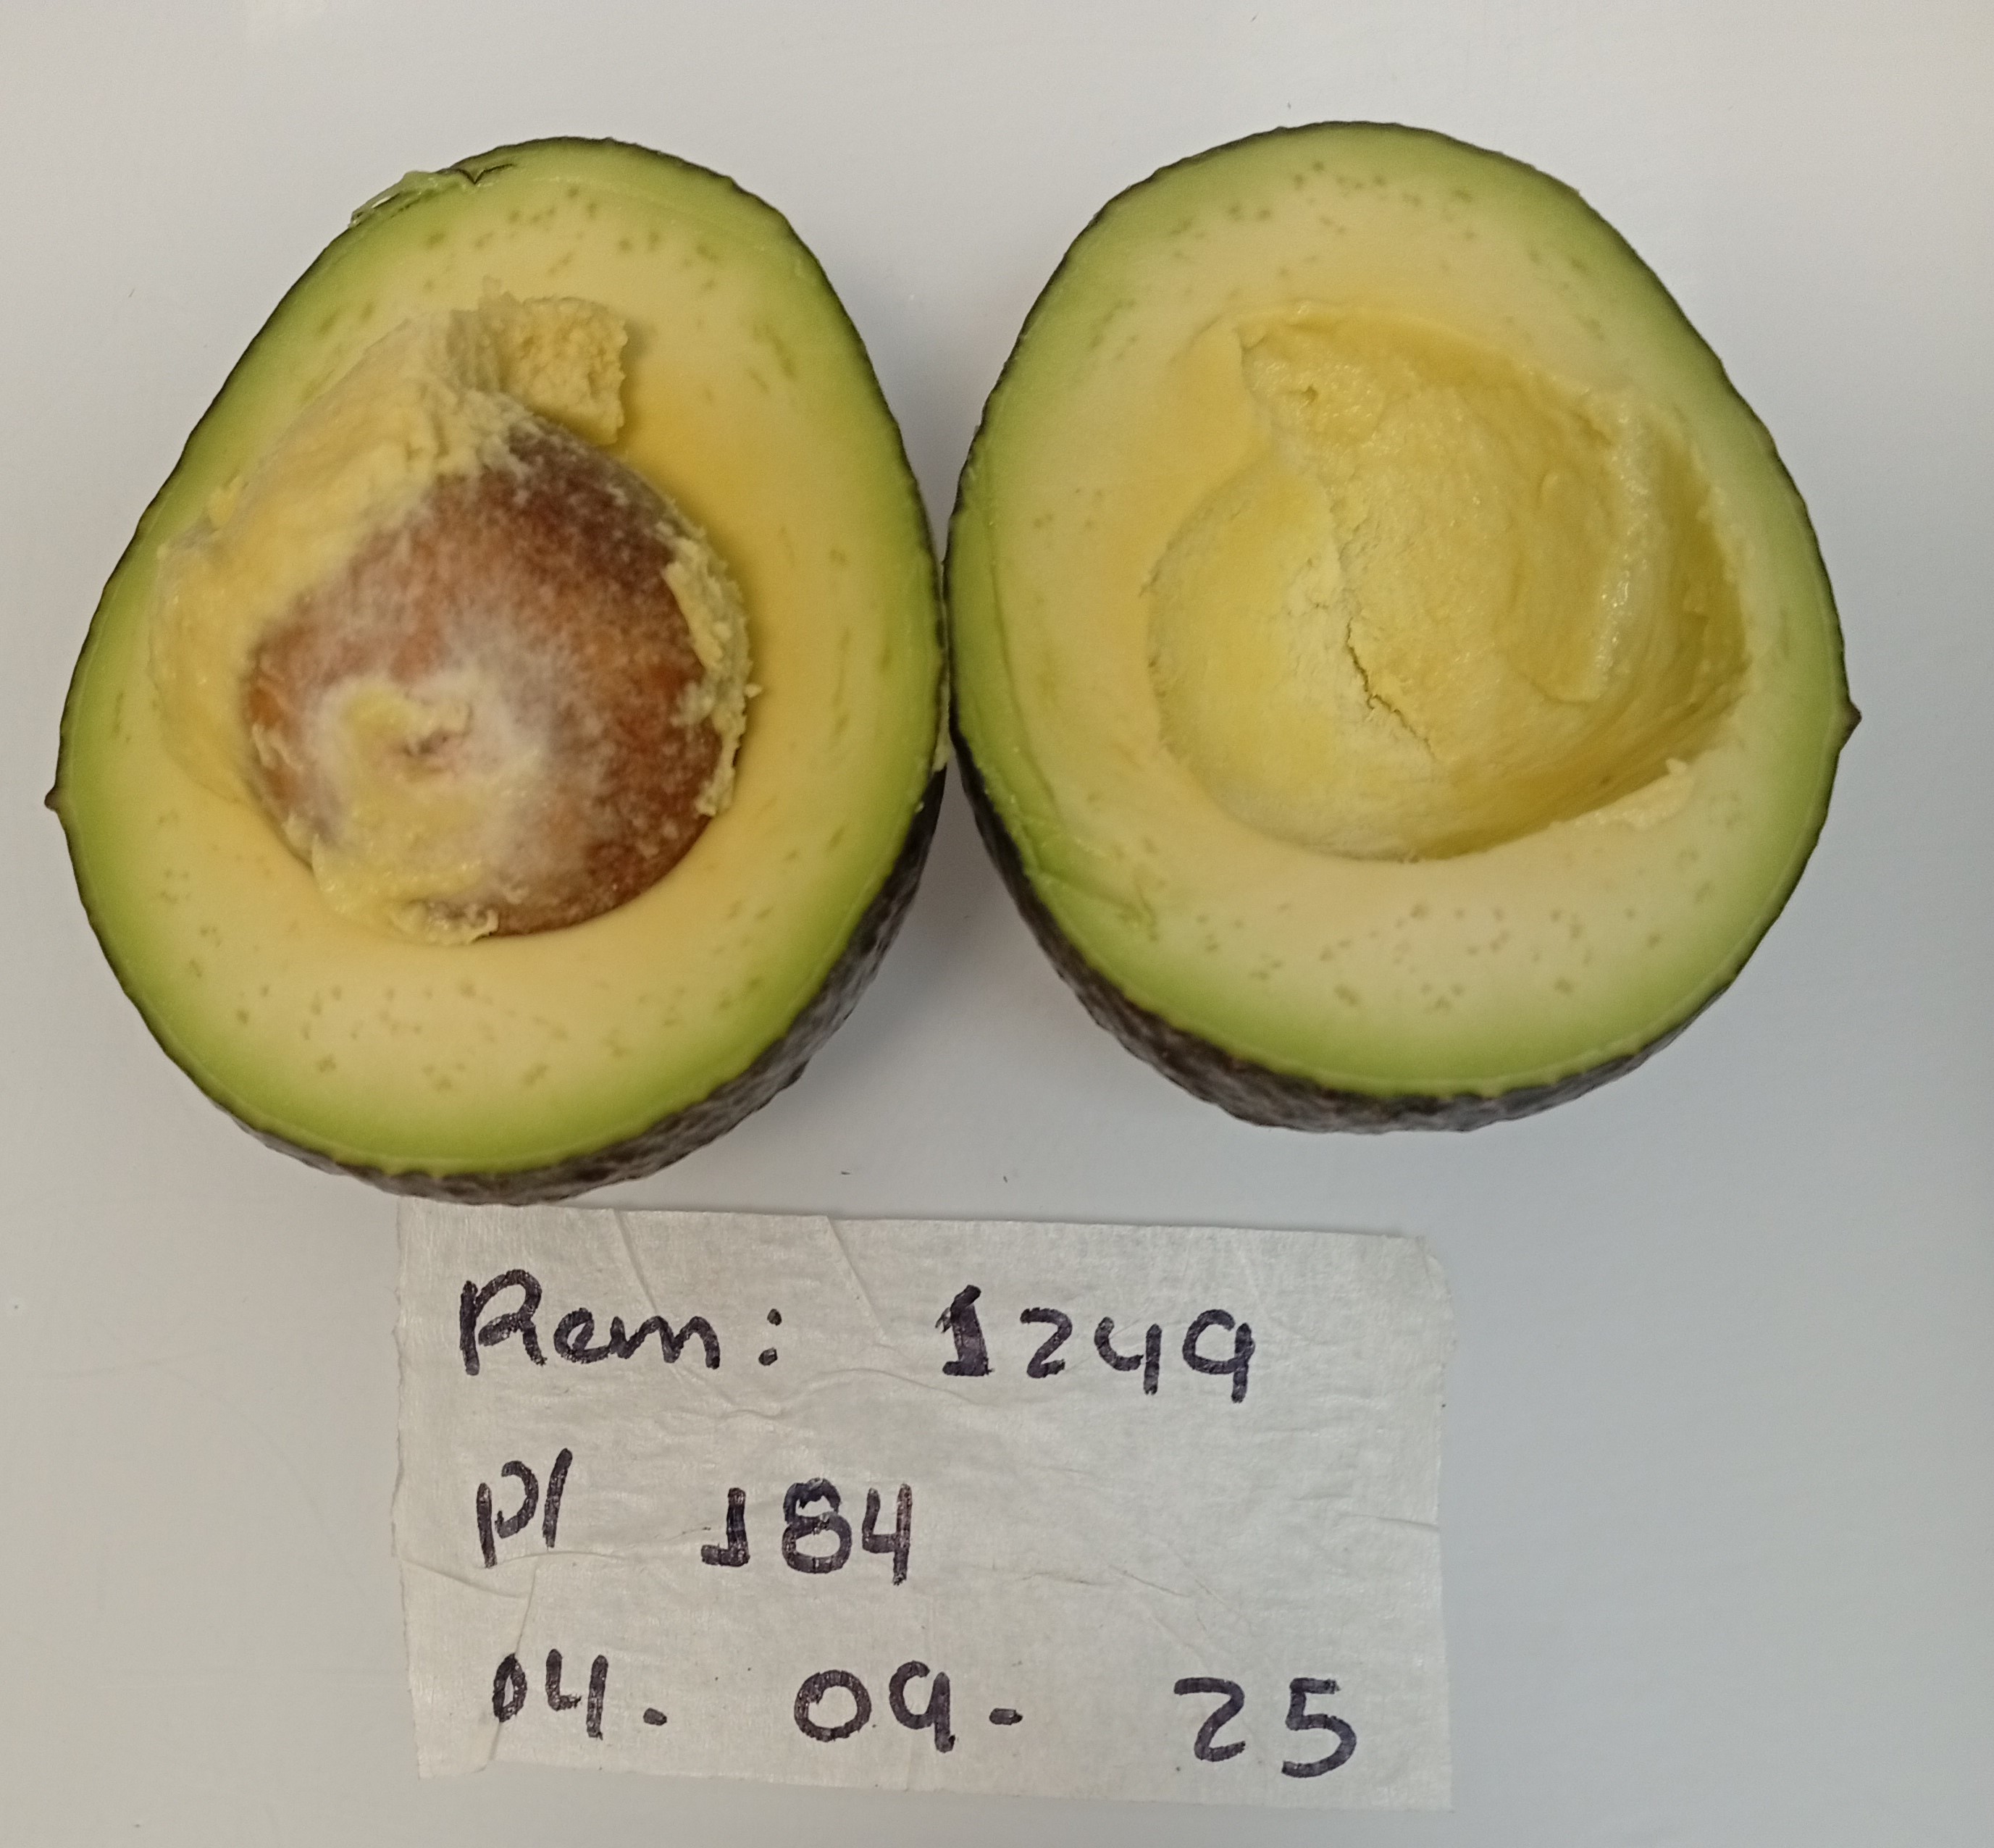 Rem: 1249
Pl 184
04. 09. 25